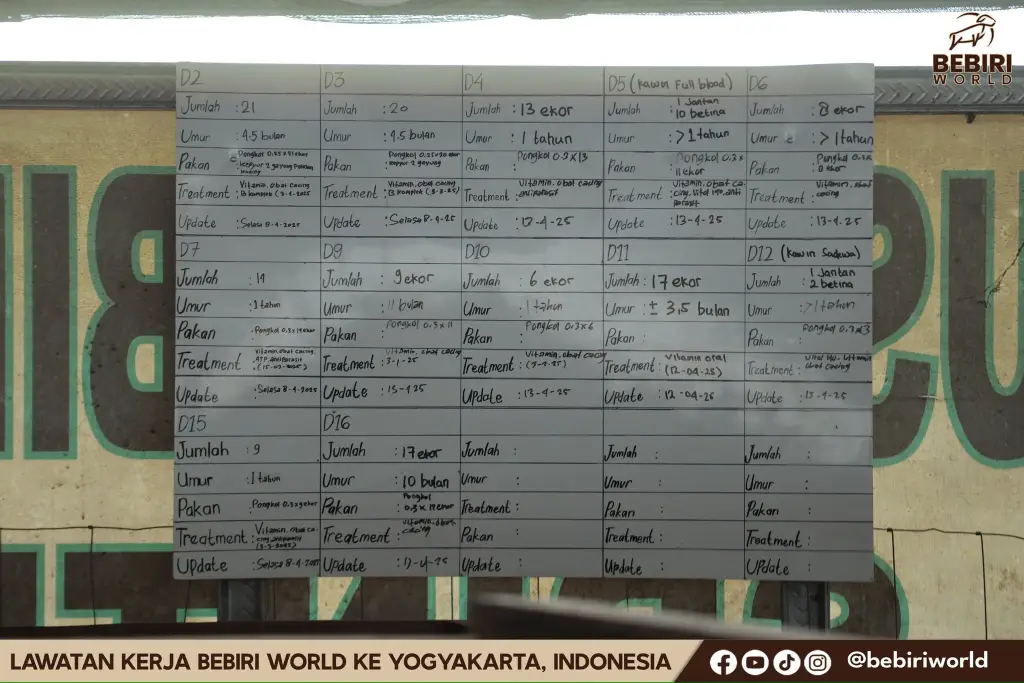 BEBIRI
WORLD
D2
Jumlah : 21
Umur : 4.5 bulan
Pakan
Treatment : Vitamin, obat cacing
Update : Selasa 8-4-2025
D3
Jumlah : 20
Umur : 4.5 bulan
Pakan
Treatment : Vitamin, obat cacing
Update : Selasa 8-4-25
D4
Jumlah : 13 ekor
Umur : 1 tahun
Pakan : Pongkol 0.2x13
Treatment : Vitamin, obat cacing
anti parasit
Update : 13-4-25
D5 (Kawin Full blood)
Jumlah : 1 Jantan
10 betina
Umur : >1 tahun
Pakan : Pongkol 0.2x
11 ekor
Treatment : Vitamin, obat ca
Update : 13-4-25
D6
Jumlah : 8 ekor
Umur : >1 tahun
Pakan :
Treatment : Vitamin, obat
cacing
Update : 13-4-25
D7
Jumlah : 14
Umur : 1 tahun
Pakan : Pongkol 0.3x14 ekor
Treatment : Vitamin, obat cacing,
Update : Selasa 8-4-2025
D9
Jumlah : 9 ekor
Umur : 11 bulan
Pakan : Pongkol 0.3x11
Treatment : Vitamin, obat cacing
3-1-25
Update : 13-4-25
D10
Jumlah : 6 ekor
Umur : 1 tahun
Pakan : Pongkol 0.3x6
Treatment : Vitamin, obat cacing
Update : 13-4-25
D11
Jumlah : 17 ekor
Umur : ± 3,5 bulan
Pakan :
Treatment : Vitamin oral
(12-04-25)
Update : 12-04-25
D12 (Kawin Sadewa)
Jumlah : 1 Jantan
2 betina
Umur : >1 tahun
Pakan : Pongkol 0.3x3
Treatment : obat cacing
Update : 13-4-25
D15
Jumlah : 9
Umur : 1 tahun
Pakan : Pongkol 0.3x9 ekor
Treatment : Vitamin, obat ca-
Update : Selasa 8-4-2025
D16
Jumlah : 17 ekor
Umur : 10 bulan
Pakan : Pongkol
0.3x17 ekor
Treatment : Vitamin, obat
cacing
Update
Jumlah :
Umur :
Treatment :
Pakan :
Update :
Jumlah :
Umur :
Pakan :
Treatment :
Update :
Jumlah :
Umur :
Pakan :
Treatment :
Update :
LAWATAN KERJA BEBIRI WORLD KE YOGYAKARTA, INDONESIA
@bebiriworld